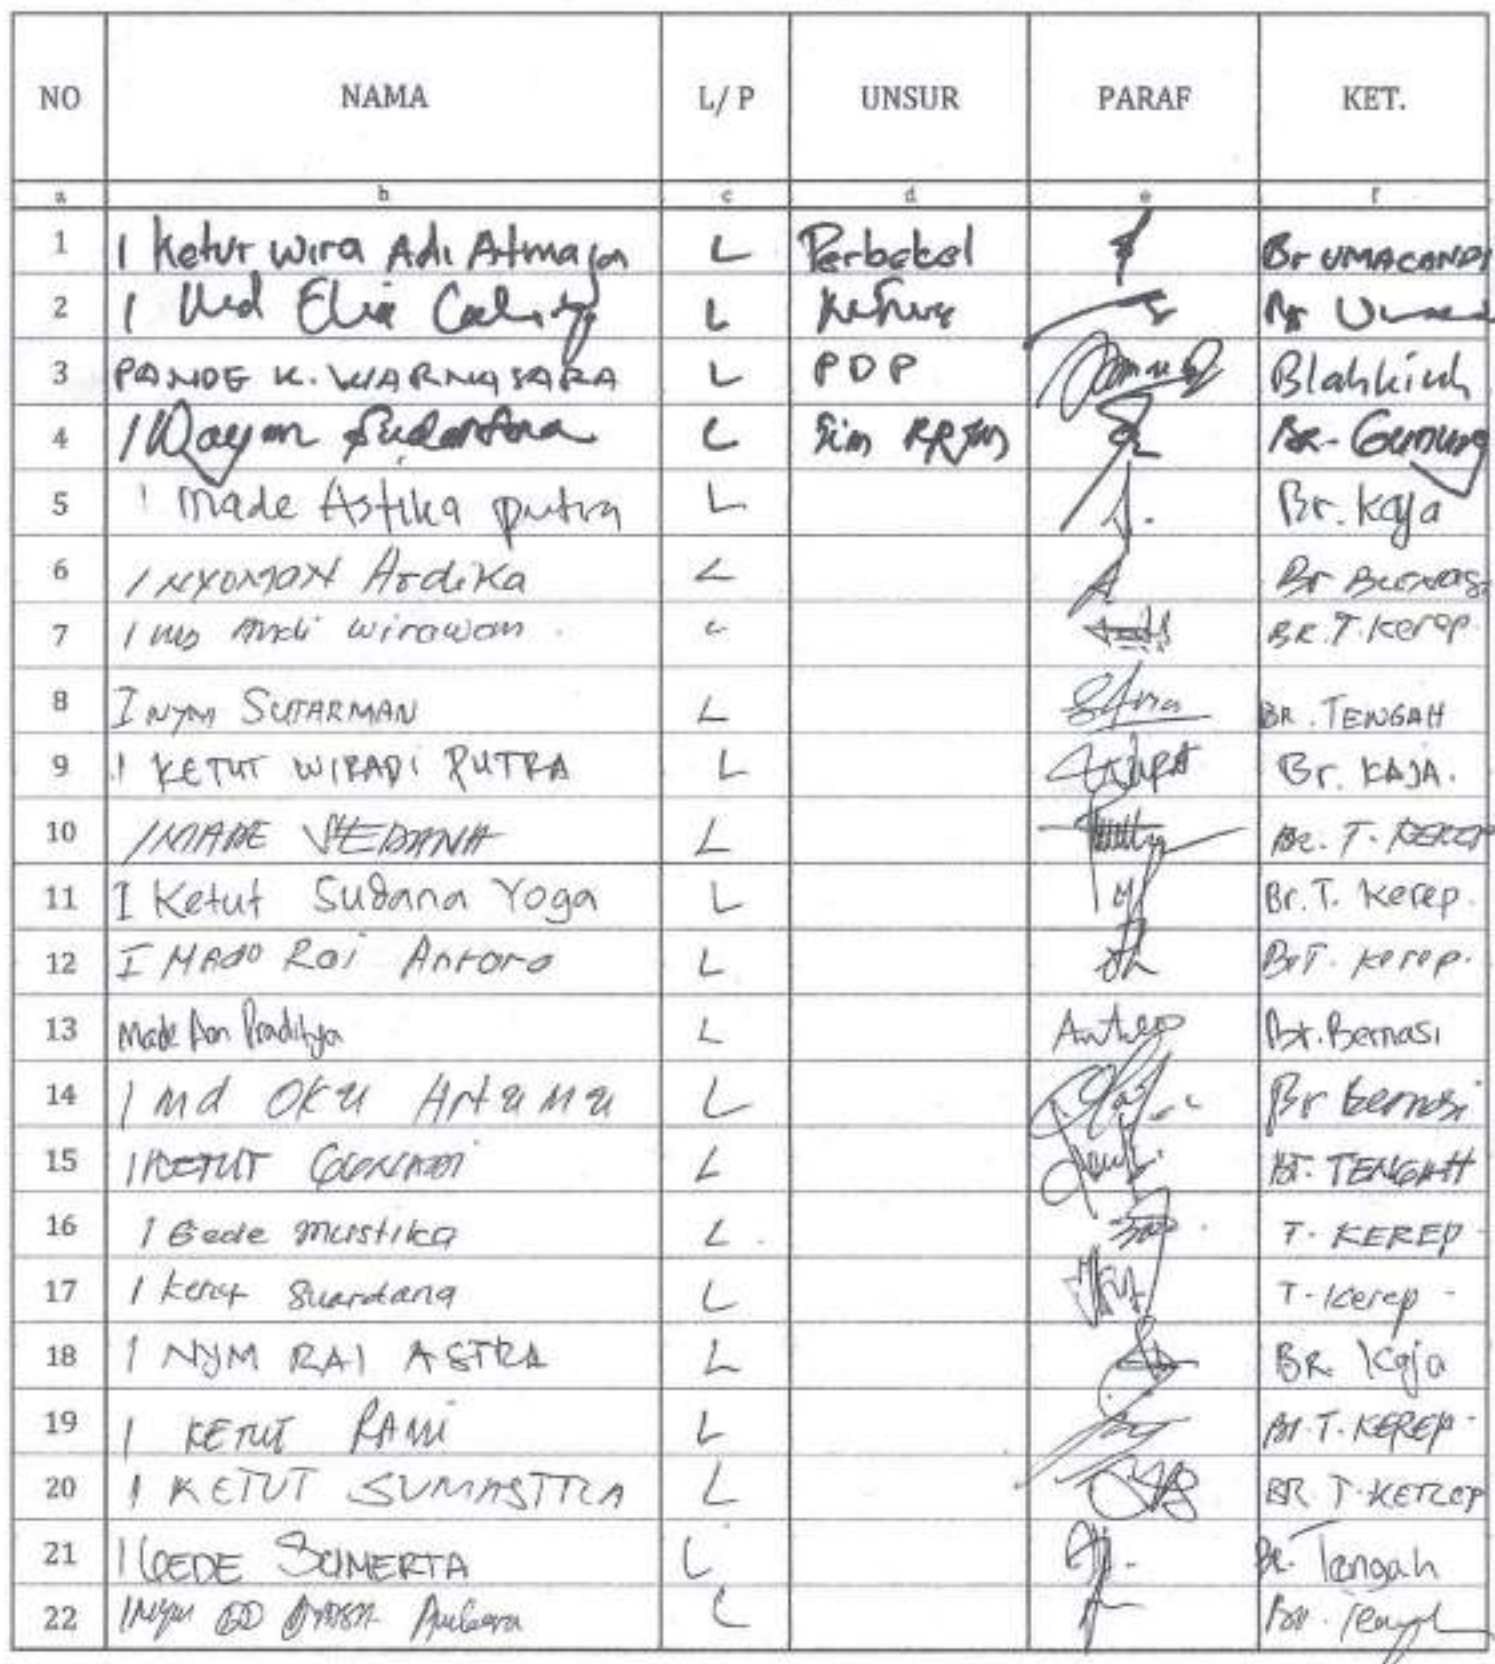 NO NAMA L/ P UNSUR PARAF KET.
a b c d e f
1 I Ketut Wira Adi Atmaja L Perbekel Br UMACANDI
2 I Md L Br
3 PANDE K. WARNASARA L PDP Blahkiuh
4 I Wayan Sudantara L Br. Gunung
5 I Made Astika putra L Br. Kaja
6 I NYOMAN Ardika L Br Bernasi
7 I Andi Wirawan L BR. T. Kerep.
8 I NYM SUTARMAN L BR. TENGAH
9 I KETUT WIRADI PUTRA L Br. KAJA.
10 I MADE WEDANA L BR. T. KEREP
11 I Ketut Sudana Yoga L Br. T. Kerep.
12 I Made Rai Antara L Br T. Kerep.
13 Made Don Praditya L Br. Bernasi
14 I Md OKa Artama L Br Bernasi
15 I KETUT GUNADI L BR. TENGAH
16 I Gede Mustika L T. KEREP
17 I Ketut Suardana L T. Kerep
18 I NYM RAI ASTRA L BR. Kaja
19 I KETUT RAMI L BR. T. KEREP
20 I KETUT SUMASTRA L BR. T. KEREP
21 I GEDE SUMERTA L Br. Tengah
22 I Nym L